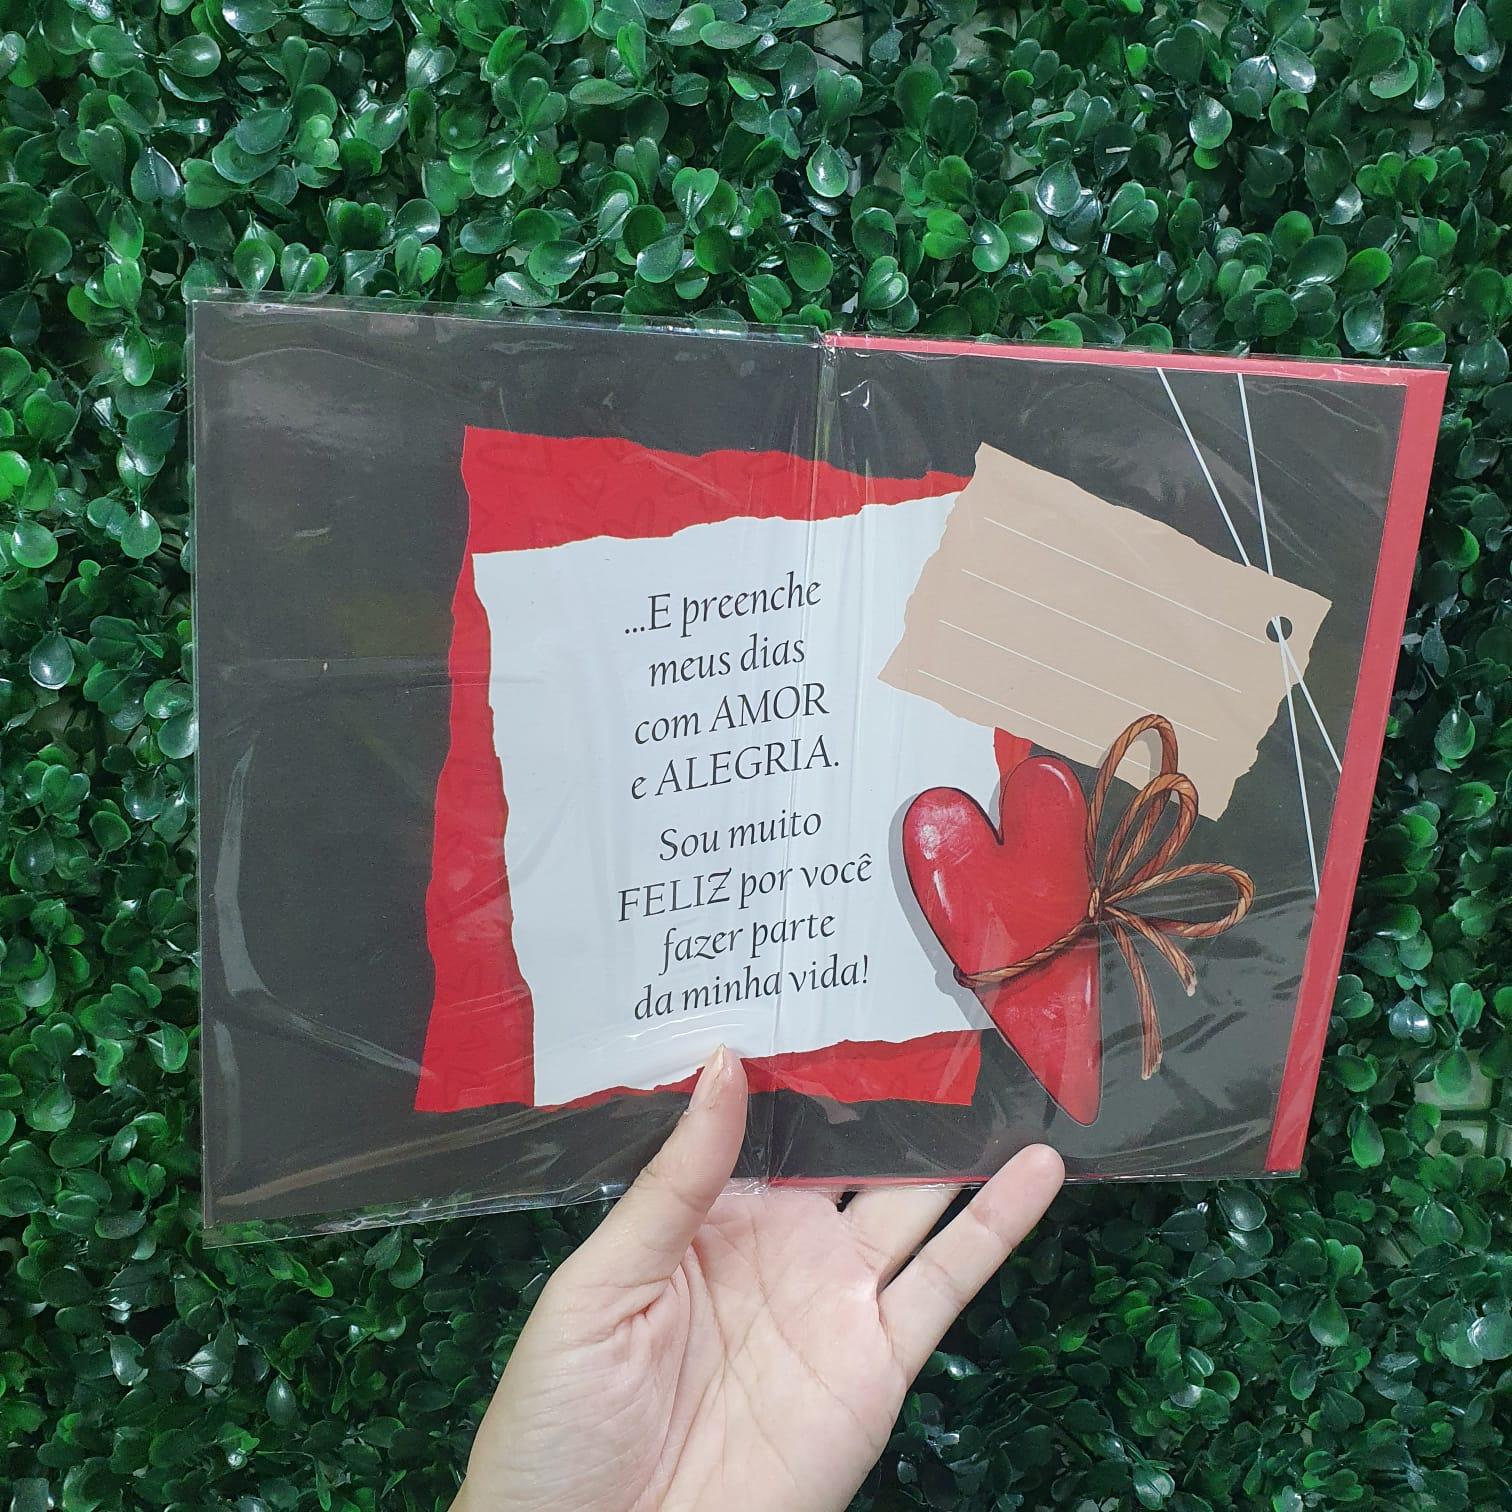 ...E preenche
meus dias
com AMOR
e ALEGRIA.
Sou muito
FELIZ por você
fazer parte
da minha vida!